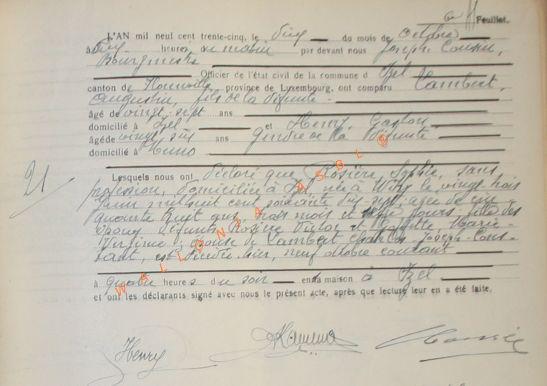 Feuillet.
L'AN mil neuf cent trente-cinq, le dix du mois de octobre
à dix heures du matin par devant nous Joseph
Bourgmestre
Officier de l'état civil de la commune d Izel
canton de province de Luxembourg, ont comparu Lambert,
Augustin, fils de la défunte
âgé de vingt sept ans
domicilié à Izel et Henry Gaston
âgé de vingt six ans gendre de la défunte
domicilié à Muno
21
Lesquels nous ont déclaré que Rosière, Sophie, sans
profession, domiciliée à Izel, née à le vingt trois
Juin mil huit cent soixante dix sept, âgée de cin
quante huit ans, trois mois et jours, fille des
époux défunts Rosière Victor et Marie-
Virginie, épouse de Lambert Joseph Cons-
tant, est décédée hier, neuf octobre courant
à quatre heures du soir en sa maison à Izel
et ont les déclarants signé avec nous le présent acte, après que lecture leur en a été faite.
WALLONIA ASBL ©
Henry